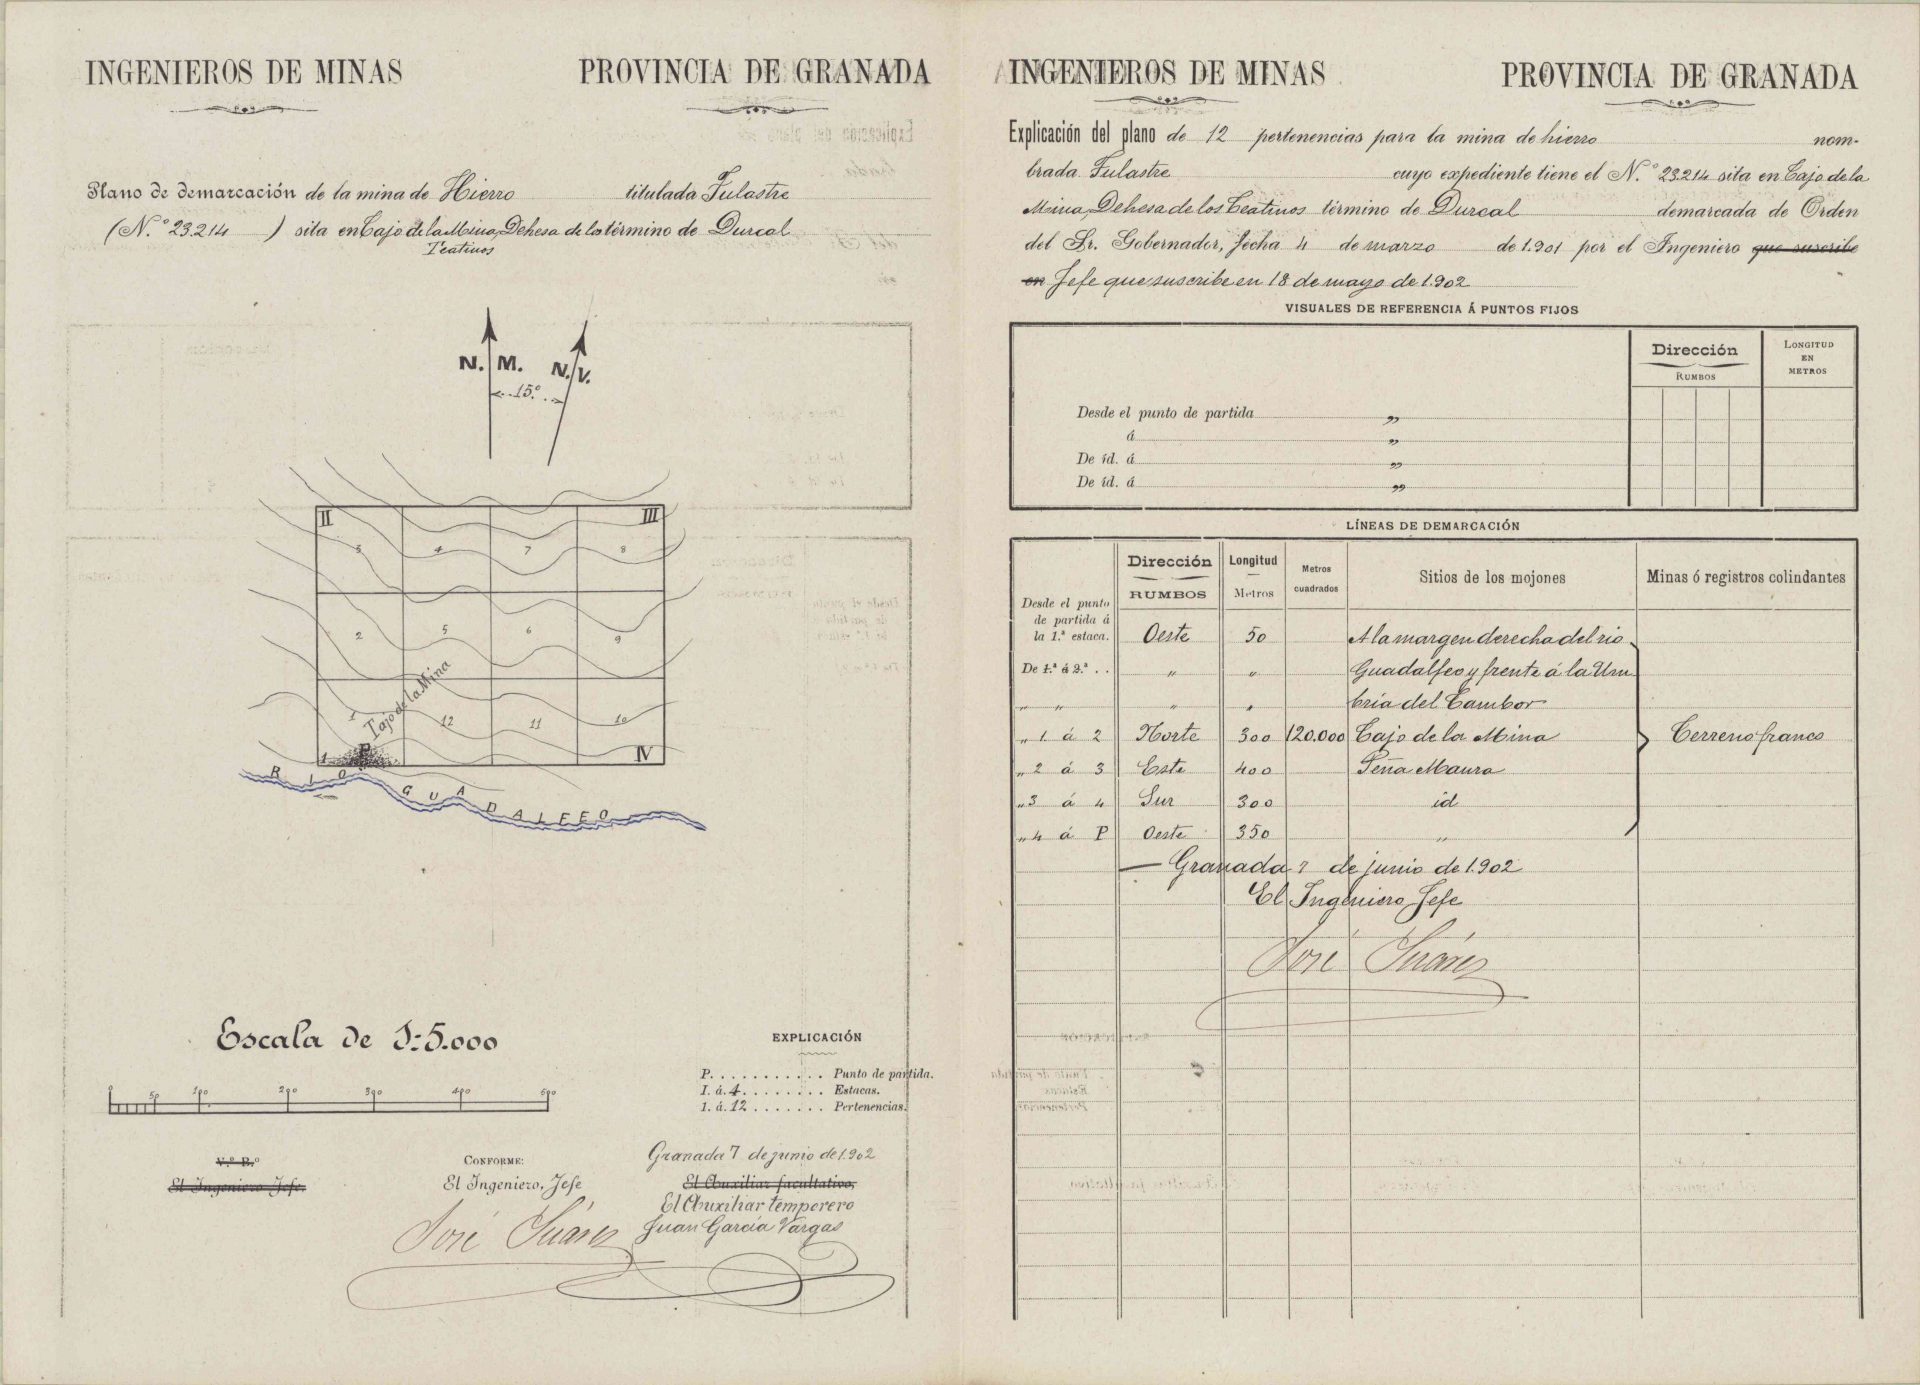 INGENIEROS DE MINAS
PROVINCIA DE GRANADA
Plano de demarcación de la mina de Hierro titulada Fulastre
(N.º 23.214 ) sita en Tajo de la Mina, Dehesa de los término de Durcal
Teatinos
N. M. N. V.
15º
II III
3 4 7 8
2 5 6 9
Tajo de la Mina
1 12 11 10
1 P IV
RIO GUADALFEO
Escala de 1:5.000
0 50 100 200 300 400 500
EXPLICACIÓN
P. . . . . . . . . . . . Punto de partida.
I. á. 4. . . . . . . . . Estacas.
1. á. 12 . . . . . . . Pertenencias.
V.º B.º
El Ingeniero Jefe.
CONFORME:
El Ingeniero, Jefe
José Suárez
Granada 7 de junio de 1.902
El Auxiliar facultativo,
El Auxiliar temporero
Juan García Vargas
INGENIEROS DE MINAS
PROVINCIA DE GRANADA
Explicación del plano de 12 pertenencias para la mina de hierro nom-
brada Fulastre cuyo expediente tiene el N.º 23.214 sita en Tajo de la
Mina, Dehesa de los Teatinos término de Durcal demarcada de Orden
del Sr. Gobernador, fecha 4 de marzo de 1.901 por el Ingeniero que suscribe
en Jefe que suscribe en 18 de mayo de 1.902
VISUALES DE REFERENCIA Á PUNTOS FIJOS
Dirección
RUMBOS
LONGITUD
EN
METROS
Desde el punto de partida „
á „
De id. á „
De id. á „
LÍNEAS DE DEMARCACIÓN
Dirección
RUMBOS
Longitud
Metros
Metros
cuadrados
Sitios de los mojones
Minas ó registros colindantes
Desde el punto
de partida á
la 1.ª estaca. Oeste 50 A la margen derecha del rio
De 1.ª á 2.ª . . „ „ Guadalfeo y frente á la Um
„ „ „ „ bría del Tambor
„ 1 á 2 Norte 300 120.000 Tajo de la Mina Terreno franco
„ 2 á 3 Este 400 Peña Maura
„ 3 á 4 Sur 300 id
„ 4 á P Oeste 350 „
— Granada 7 de junio de 1.902
El Ingeniero Jefe
José Suárez